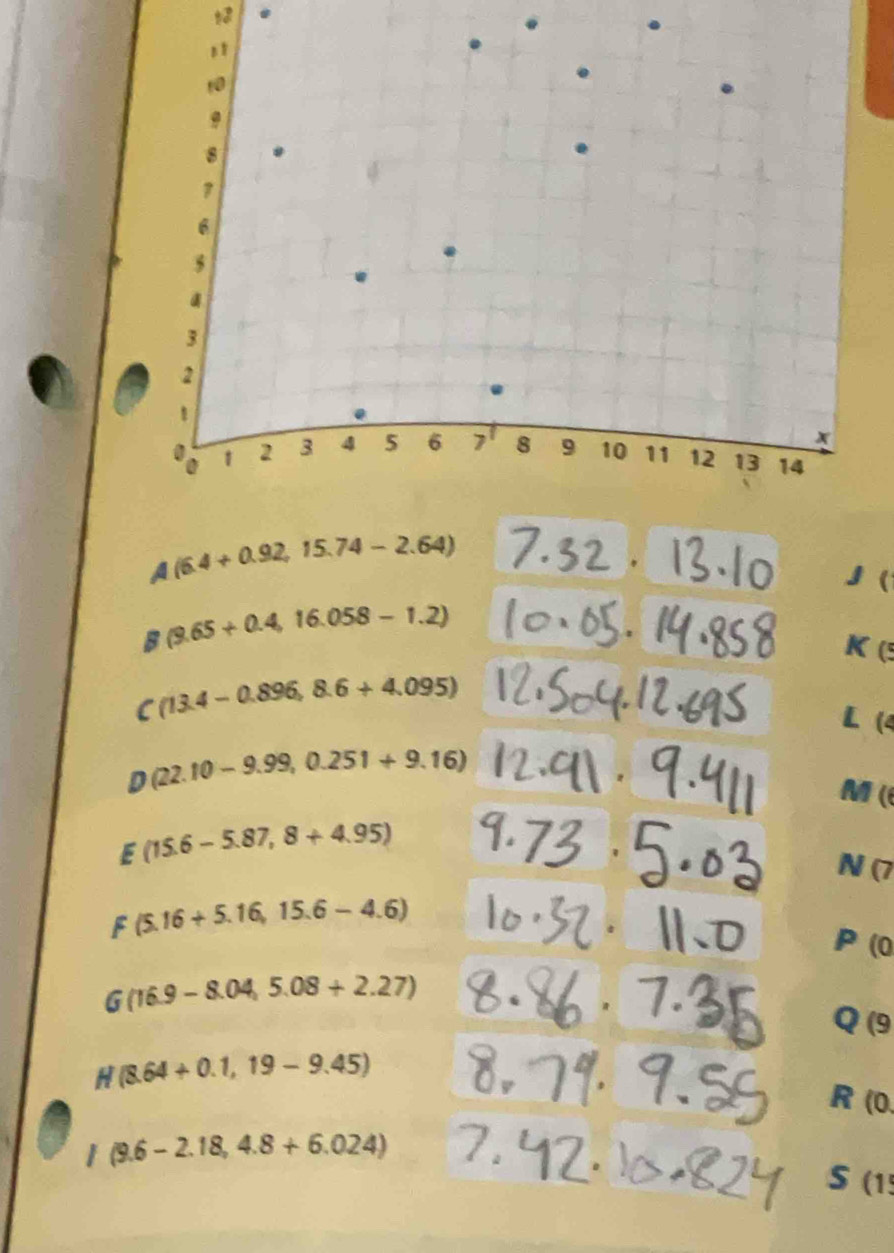 12
11
10
9
8
7
6
5
4
3
2
1
0
0 1 2 3 4 5 6 7 8 9 10 11 12 13 14 x
A (6.4 + 0.92, 15.74 − 2.64) 7.32 . 13.10 J (
B (9.65 + 0.4, 16.058 − 1.2) 10.05 . 14.858 K (
C (13.4 − 0.896, 8.6 + 4.095) 12.504 . 12.695 L (4
D (22.10 − 9.99, 0.251 + 9.16) 12.91 . 9.411 M (
E (15.6 − 5.87, 8 + 4.95) 9.73 . 5.03 N (7
F (5.16 + 5.16, 15.6 − 4.6) 10.32 . 11.0 P (0
G (16.9 − 8.04, 5.08 + 2.27) 8.86 . 7.35 Q (9
H (8.64 + 0.1, 19 − 9.45) 8.79 . 9.55 R (0.
I (9.6 − 2.18, 4.8 + 6.024) 7.42 . 10.824 S (15